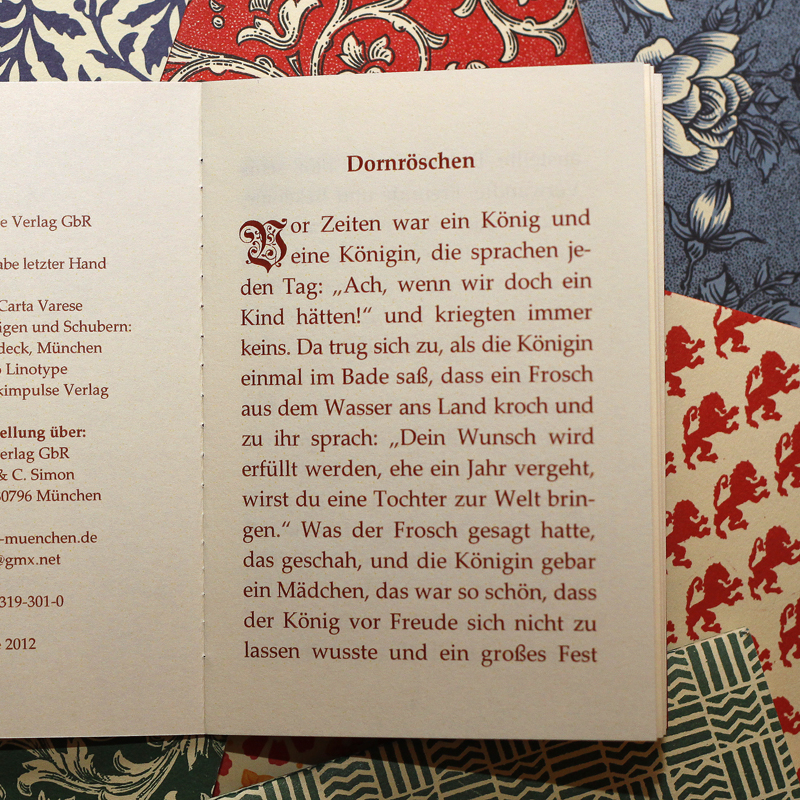 e Verlag GbR
abe letzter Hand
Carta Varese
igen und Schubern:
deck, München
Linotype
kimpulse Verlag
ellung über:
erlag GbR
& C. Simon
80796 München
-muenchen.de
@gmx.net
319-301-0
2012
Dornröschen
Vor Zeiten war ein König und
eine Königin, die sprachen je-
den Tag: „Ach, wenn wir doch ein
Kind hätten!“ und kriegten immer
keins. Da trug sich zu, als die Königin
einmal im Bade saß, dass ein Frosch
aus dem Wasser ans Land kroch und
zu ihr sprach: „Dein Wunsch wird
erfüllt werden, ehe ein Jahr vergeht,
wirst du eine Tochter zur Welt brin-
gen.“ Was der Frosch gesagt hatte,
das geschah, und die Königin gebar
ein Mädchen, das war so schön, dass
der König vor Freude sich nicht zu
lassen wusste und ein großes Fest